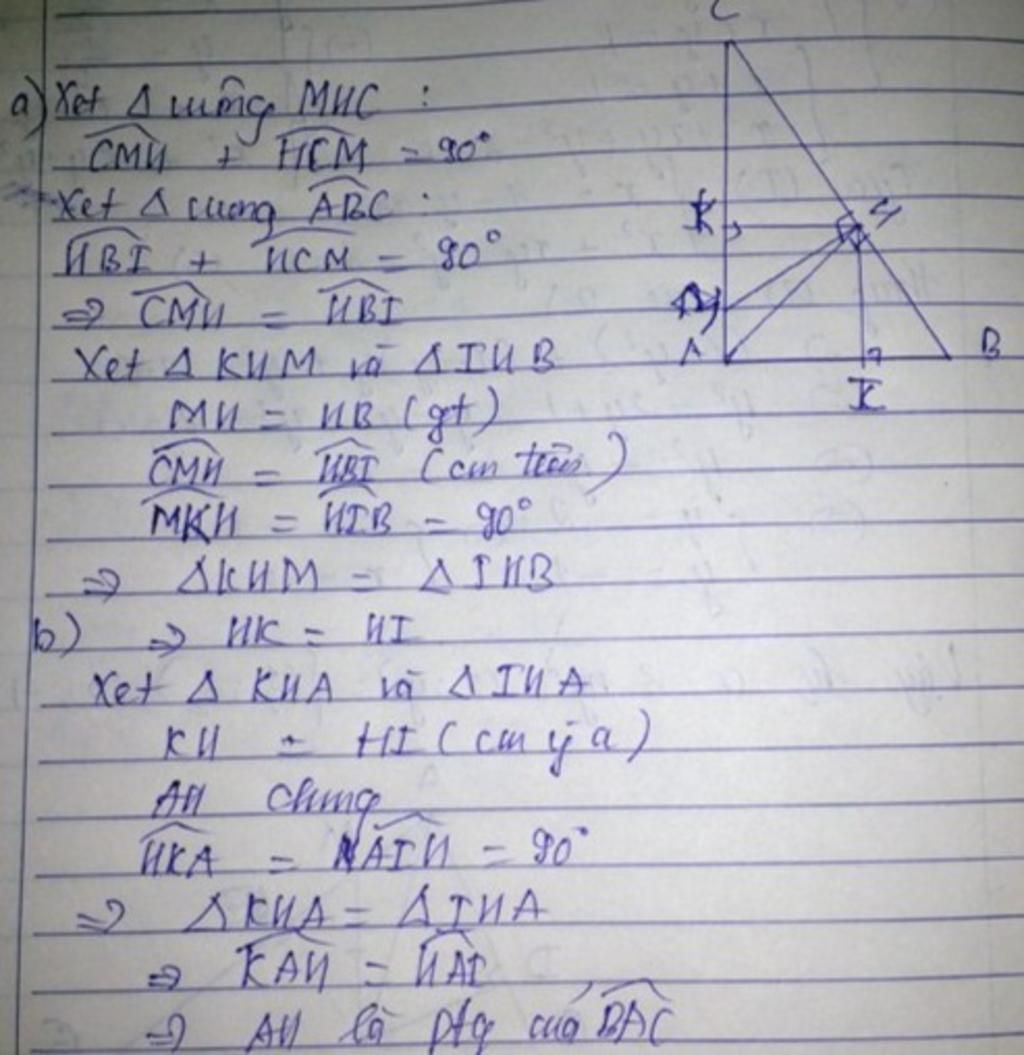 a) Xét Δ vuông MHC :
CMH + HCM = 90°
Xét Δ vuông ABC :
HBI + HCM = 90°
⇒ CMH = HBI
Xét Δ KHM và Δ IHB
MH = HB (gt)
CMH = HBI (cm trên)
MKH = HIB = 90°
⇒ ΔKHM = ΔIHB
b) ⇒ HK = HI
Xét Δ KHA và Δ IHA
KH = HI (cm ý a)
AH chung
HKA = AIH = 90°
⇒ ΔKHA = ΔIHA
⇒ KAH = HAI
⇒ AH là ptg của BAC
C
K
H
M
A
B
I